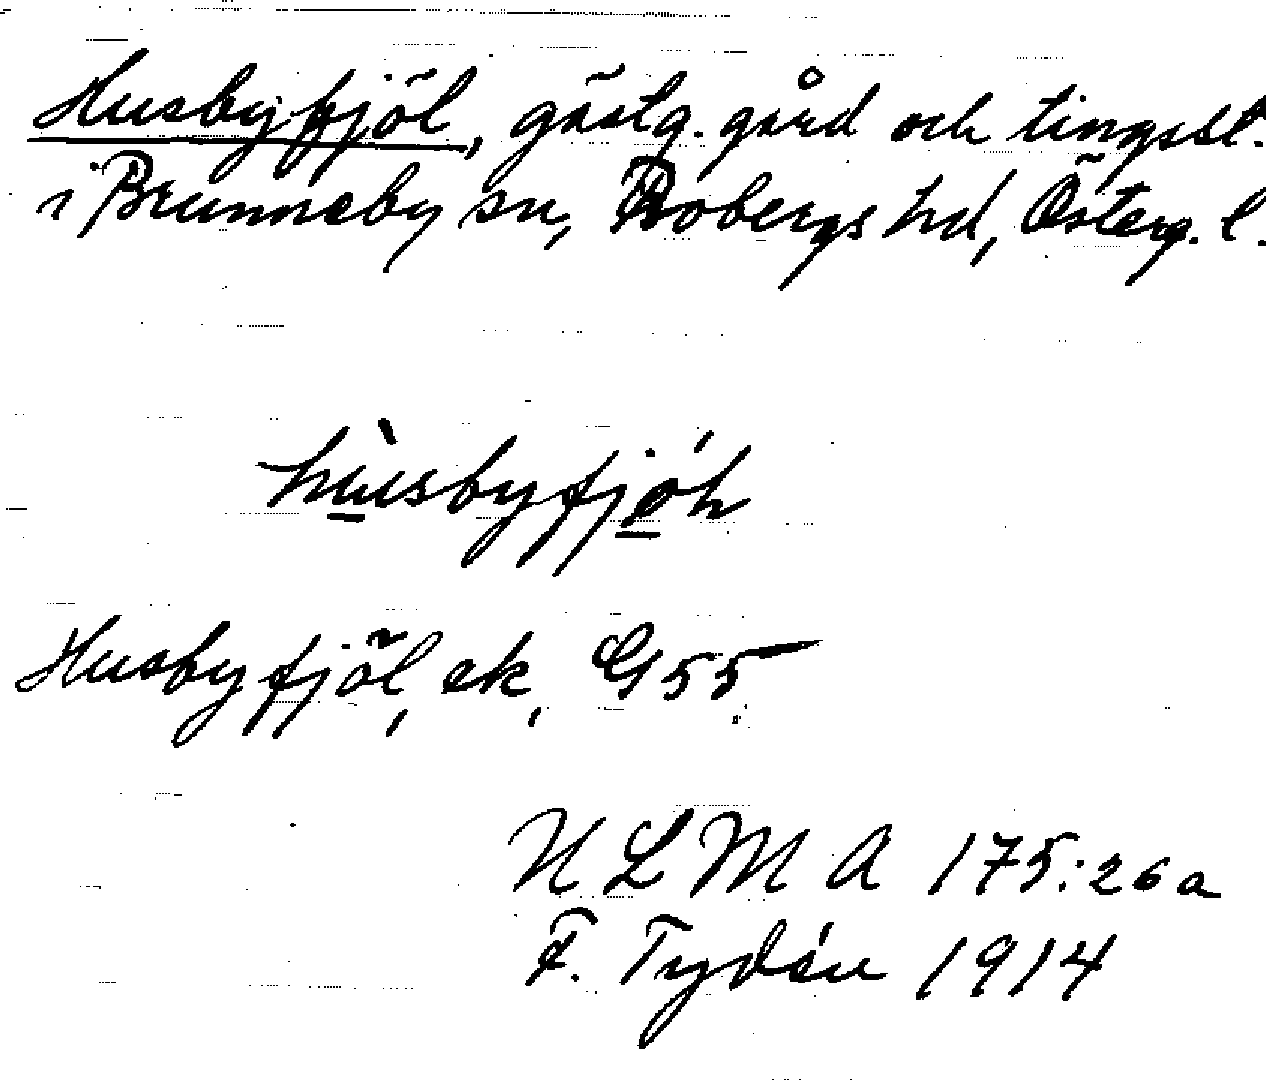 Husbyfjöl, gästg. gård och tingsst.
i Brunneby sn, Bobergs hd, Österg. l.
hùsbyfjóh
Husbyfjöl, ek, G55
ULMA 175:26a
F. Tydén 1914